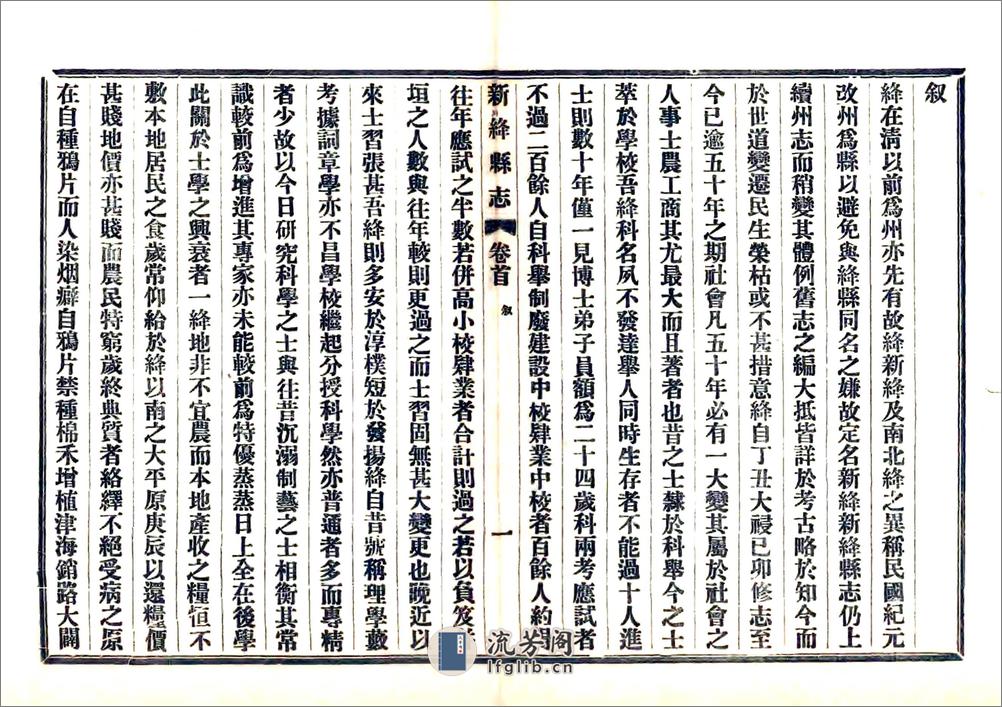 叙
絳在清以前爲州亦先有故絳新絳及南北絳之異稱民國紀元
改州爲縣以避免與絳縣同名之嫌故定名新絳新絳縣志仍上
續州志而稍變其體例舊志之編大抵皆詳於考古略於知今而
於世道變遷民生榮枯或不甚措意絳自丁丑大祲已卯修志至
今已逾五十年之期社會凡五十年必有一大變其屬於社會之
人事士農工商其尤最大而且著者也昔之士隸於科舉今之士
萃於學校吾絳科名夙不發達舉人同時生存者不能過十人進
士則數十年僅一見博士弟子員額爲二十四歲科兩考應試者
不過二百餘人自科舉制廢建設中校肄業中校者百餘人約
新絳縣志 卷首 叙 一
往年應試之半數若併高小校肄業者合計則過之若以負笈
垣之人數與往年較則更過之而士習固無甚大變更也晚近以
來士習張甚吾絳則多安於淳樸短於發揚絳自昔號稱理學藪
考據詞章學亦不昌學校繼起分授科學然亦普通者多而專精
者少故以今日研究科學之士與往昔沉溺制藝之士相衡其常
識較前爲增進其專家亦未能較前爲特優蒸蒸日上全在後學
此關於士學之興衰者一絳地非不宜農而本地產收之糧恒不
敷本地居民之食歲常仰給於絳以南之大平原庚辰以還糧價
甚賤地價亦甚賤而農民特窮歲終典質者絡繹不絕受病之原
在自種鴉片而人染烟癖自鴉片禁種棉禾增植津海銷路大闢
流芳阁
lfglib.cn